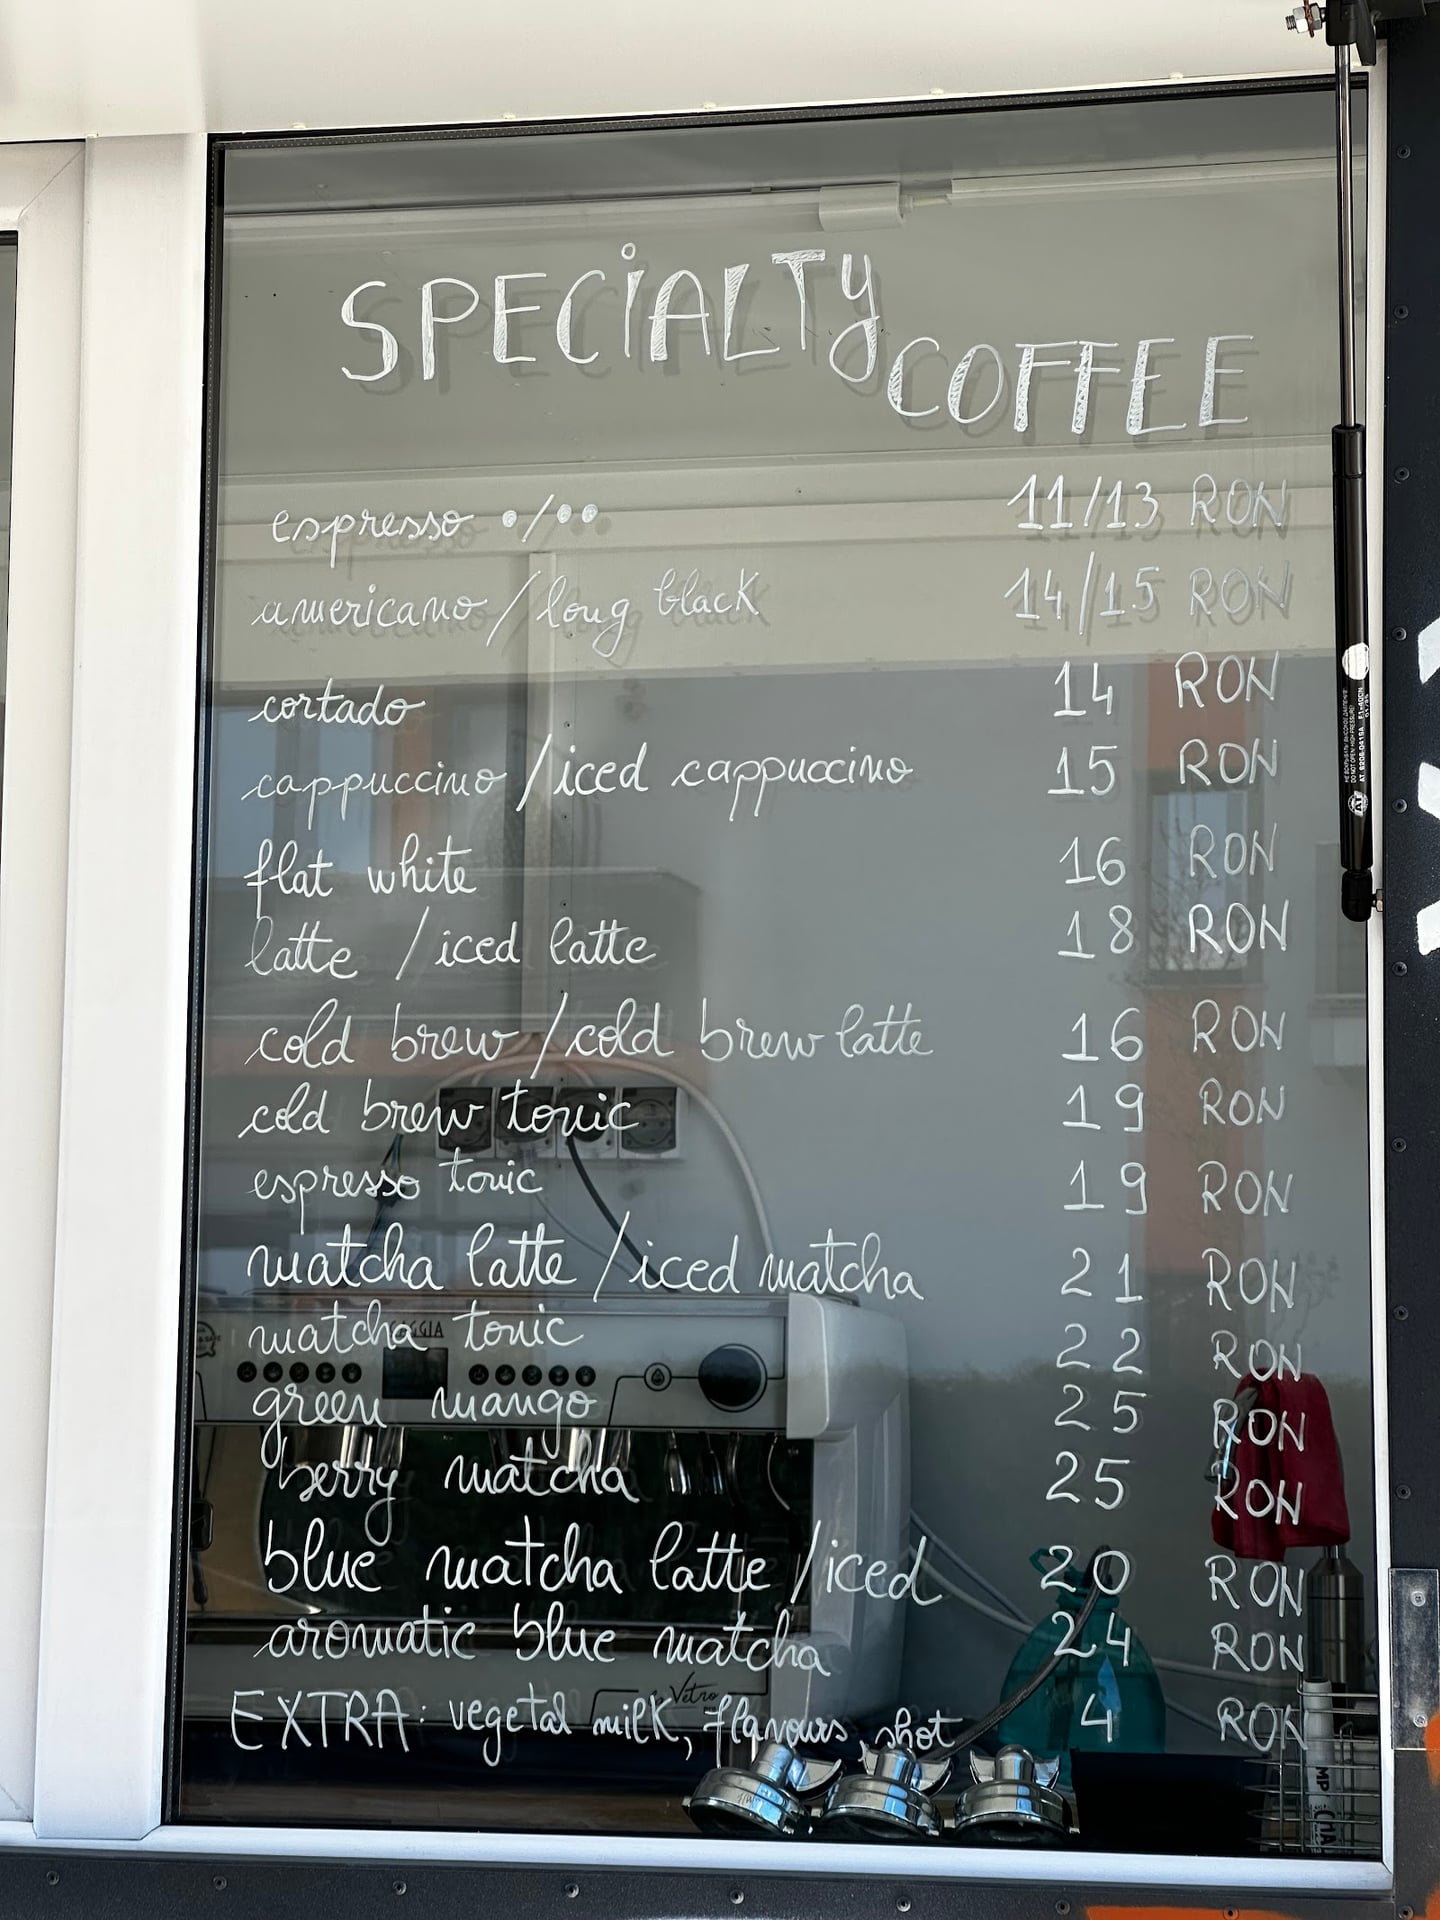 SPECIALTY
COFFEE
espresso •/•• 11/13 RON
americano / long black 14/15 RON
cortado 14 RON
cappuccino / iced cappuccino 15 RON
flat white 16 RON
latte / iced latte 18 RON
cold brew / cold brew latte 16 RON
cold brew tonic 19 RON
espresso tonic 19 RON
matcha latte / iced matcha 21 RON
matcha tonic 22 RON
GAGGIA
green mango 25 RON
berry matcha 25 RON
blue matcha latte / iced 20 RON
aromatic blue matcha 24 RON
Vetro
EXTRA: vegetal milk, flavours, shot 4 RON